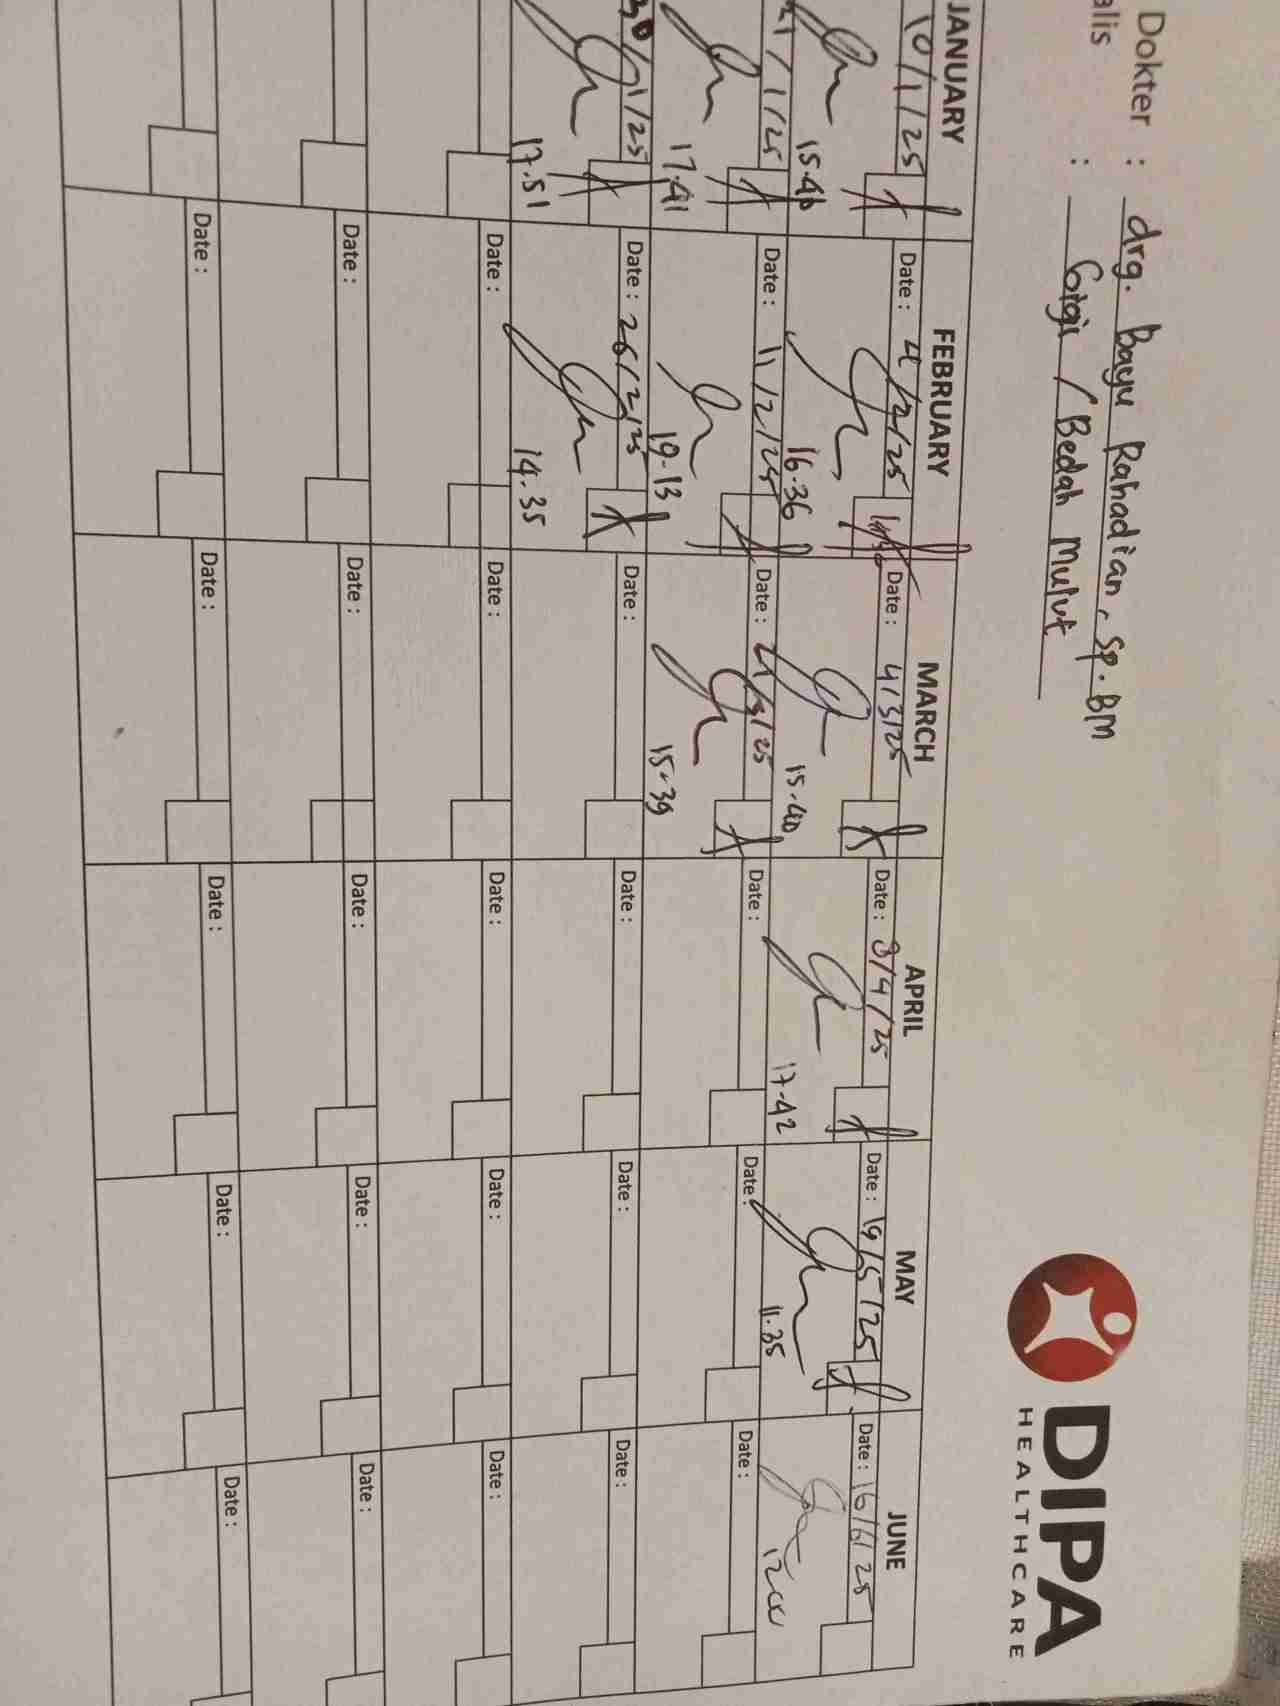 Dokter : drg. Bayu Rahadian, Sp. BM
alis : Gigi / Bedah Mulut
DIPA
HEALTHCARE
JANUARY FEBRUARY MARCH APRIL MAY JUNE
10/1/25 Date : 4/2/25 Date : 4/3/25 Date : 8/4/25 Date : 19/5/25 Date : 16/6/25
15.46 16.36 15.40 17.42 11.35 1200
21/1/25 Date : 11/2/25 Date : 21/3/25 Date : Date : Date :
17.41 19.13 15.39
30/1/25 Date : 26/2/25 Date : Date : Date : Date :
17.51 14.35
Date : Date : Date : Date : Date :
Date : Date : Date : Date : Date :
Date : Date : Date : Date : Date :